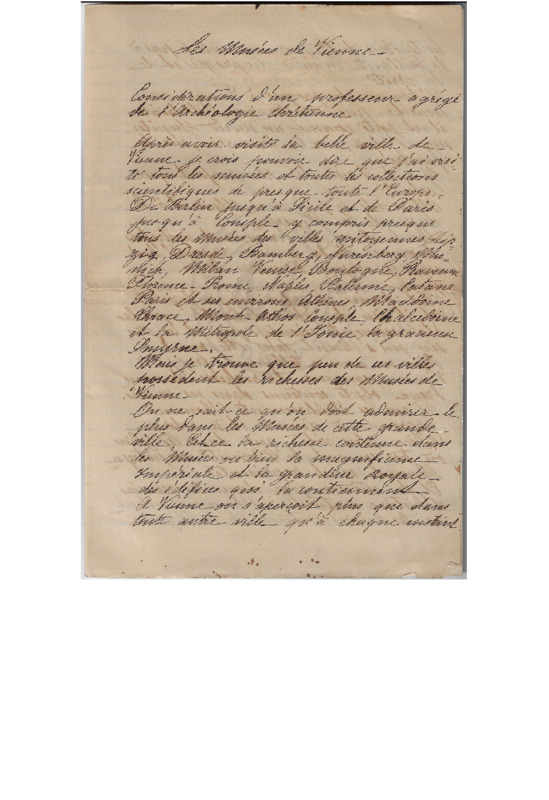 Les Musées de Vienne.
Considérations d'un professeur agrégé
de l'Archéologie chrétienne
Après avoir visité la belle ville de
Vienne je crois pouvoir dire que j'ai visi-
té tous les musées et toutes les collections
scientifiques de presque toute l'Europe.
De Berlin jusqu'à Sicile et de Paris
jusqu'à Conple y compris presque
tous les Musées des villes mitoyennes Leip
zig, Dresde, Bamberg, Nuremberg, Mu
nich, Milan Venise, Boulogne, Ravenne
Florence Rome, Naples, Palerme, Catane
Paris et ses environs, Athènes, Macédoine
Thrace, Mont Athos Conple Chalcédoine
et la Métropole de l'Ionie la gracieuse
Smyrne.
Mais je trouve que peu de ces villes
possèdent les richesses des Musées de
Vienne
On ne sait ce qu'on doit admirer le
plus dans les Musées de cette grande
ville. Est-ce la richesse contenue dans
les Musées ou bien la magnificence
Impériale et la grandeur Royale
des édifices qui la contiennent
A Vienne on s'aperçoit plus que dans
toute autre ville qu'à chaque instant